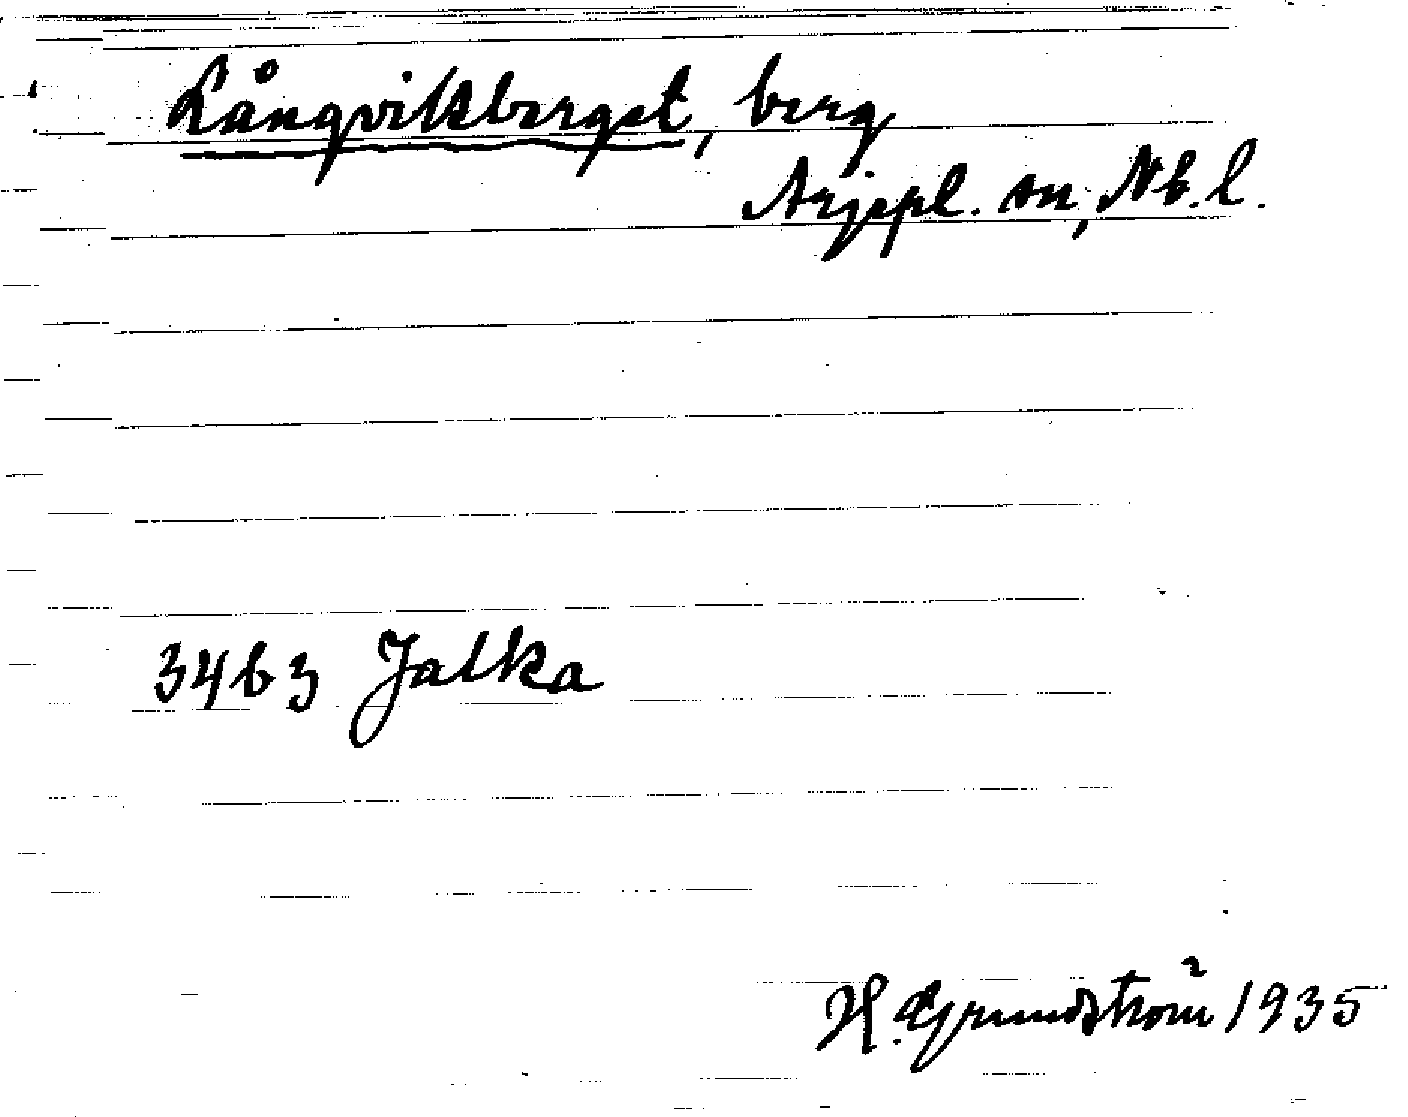 Långvikberget, berg
Arjepl. sn, Nb. l.
3463 Jalka
H. Grundström 1935